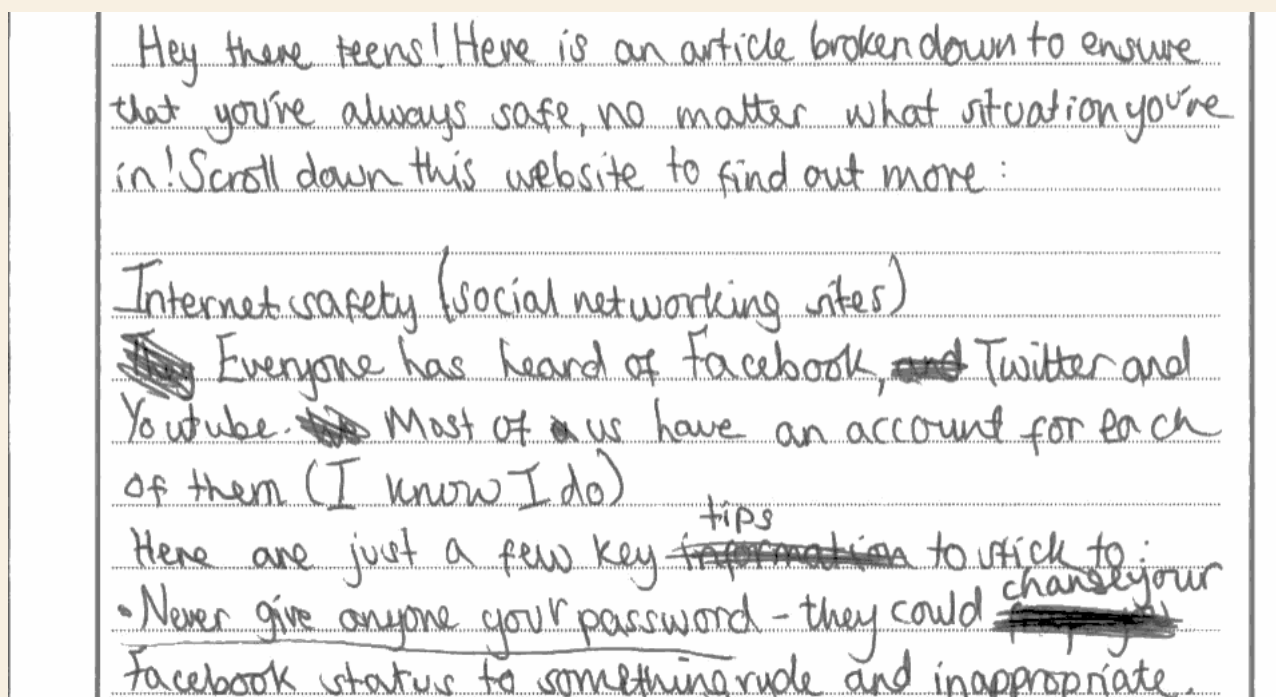 Hey there teens! Here is an article broken down to ensure
that you're always safe, no matter what situation you're
in! Scroll down this website to find out more :
Internet safety (social networking sites)
Everyone has heard of Facebook, and Twitter and
Youtube. Most of us have an account for each
of them (I know I do)
tips
Here are just a few key information to stick to :
change your
• Never give anyone your password - they could
Facebook status to something rude and inappropriate.